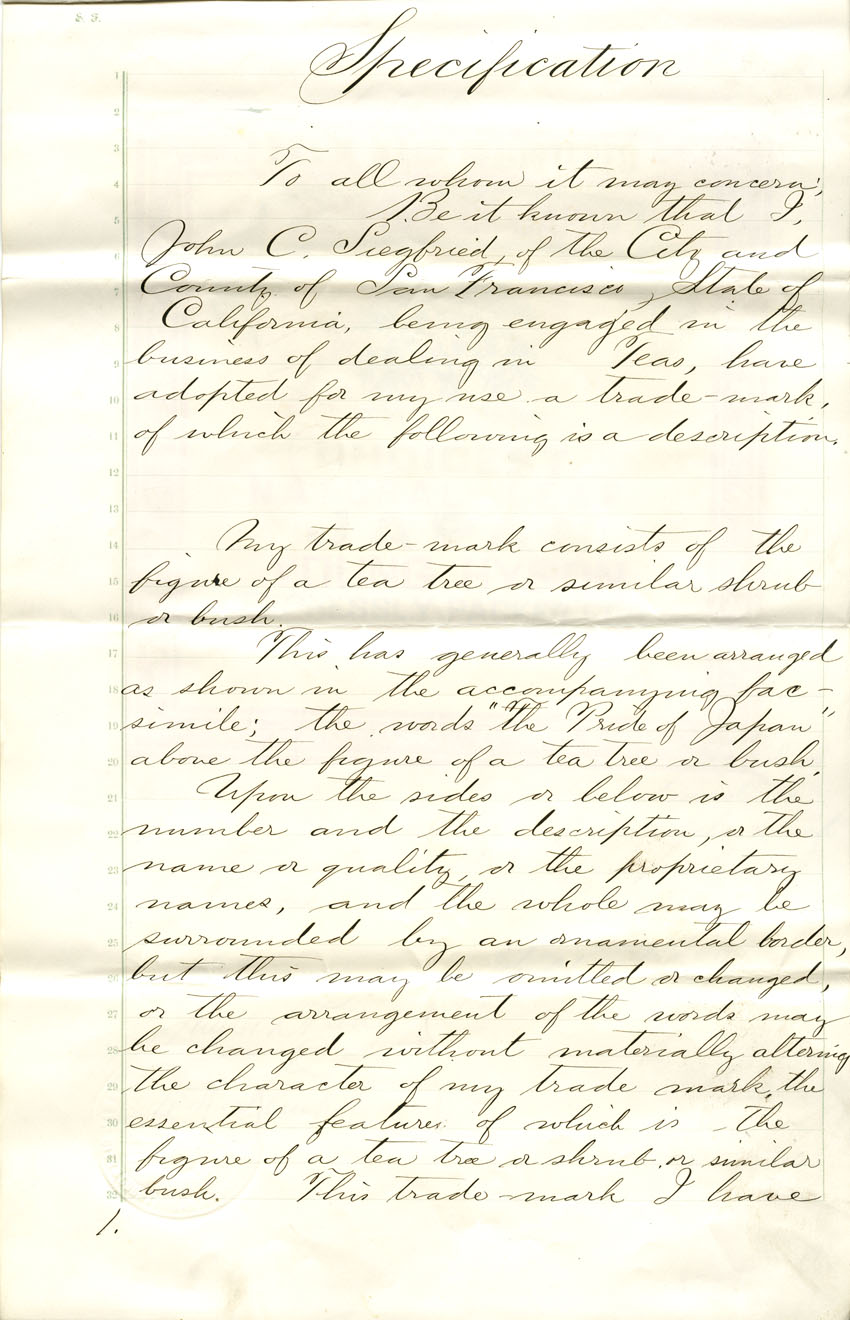 Specification
1
2
3
4
5
6
7
8
9
10
11
12
13
14
15
16
17
18
19
20
21
22
23
24
25
26
27
28
29
30
31
32
To all whom it may concern;
Be it known that I,
John C. Siegfried, of the City and
County of San Francisco, State of
California, being engaged in the
business of dealing in Teas, have
adopted for my use a trade-mark,
of which the following is a description.
My trade-mark consists of the
figure of a tea tree or similar shrub
or bush.
This has generally been arranged
as shown in the accompanying fac-
simile; the words "the Pride of Japan"
above the figure of a tea tree or bush.
Upon the sides or below is the
number and the description, or the
name or quality, or the proprietary
names, and the whole may be
surrounded by an ornamental border,
but this may be omitted or changed,
or the arrangement of the words may
be changed without materially altering
the character of my trade mark, the
essential feature of which is the
figure of a tea tree or shrub or similar
bush. This trade-mark I have
1.